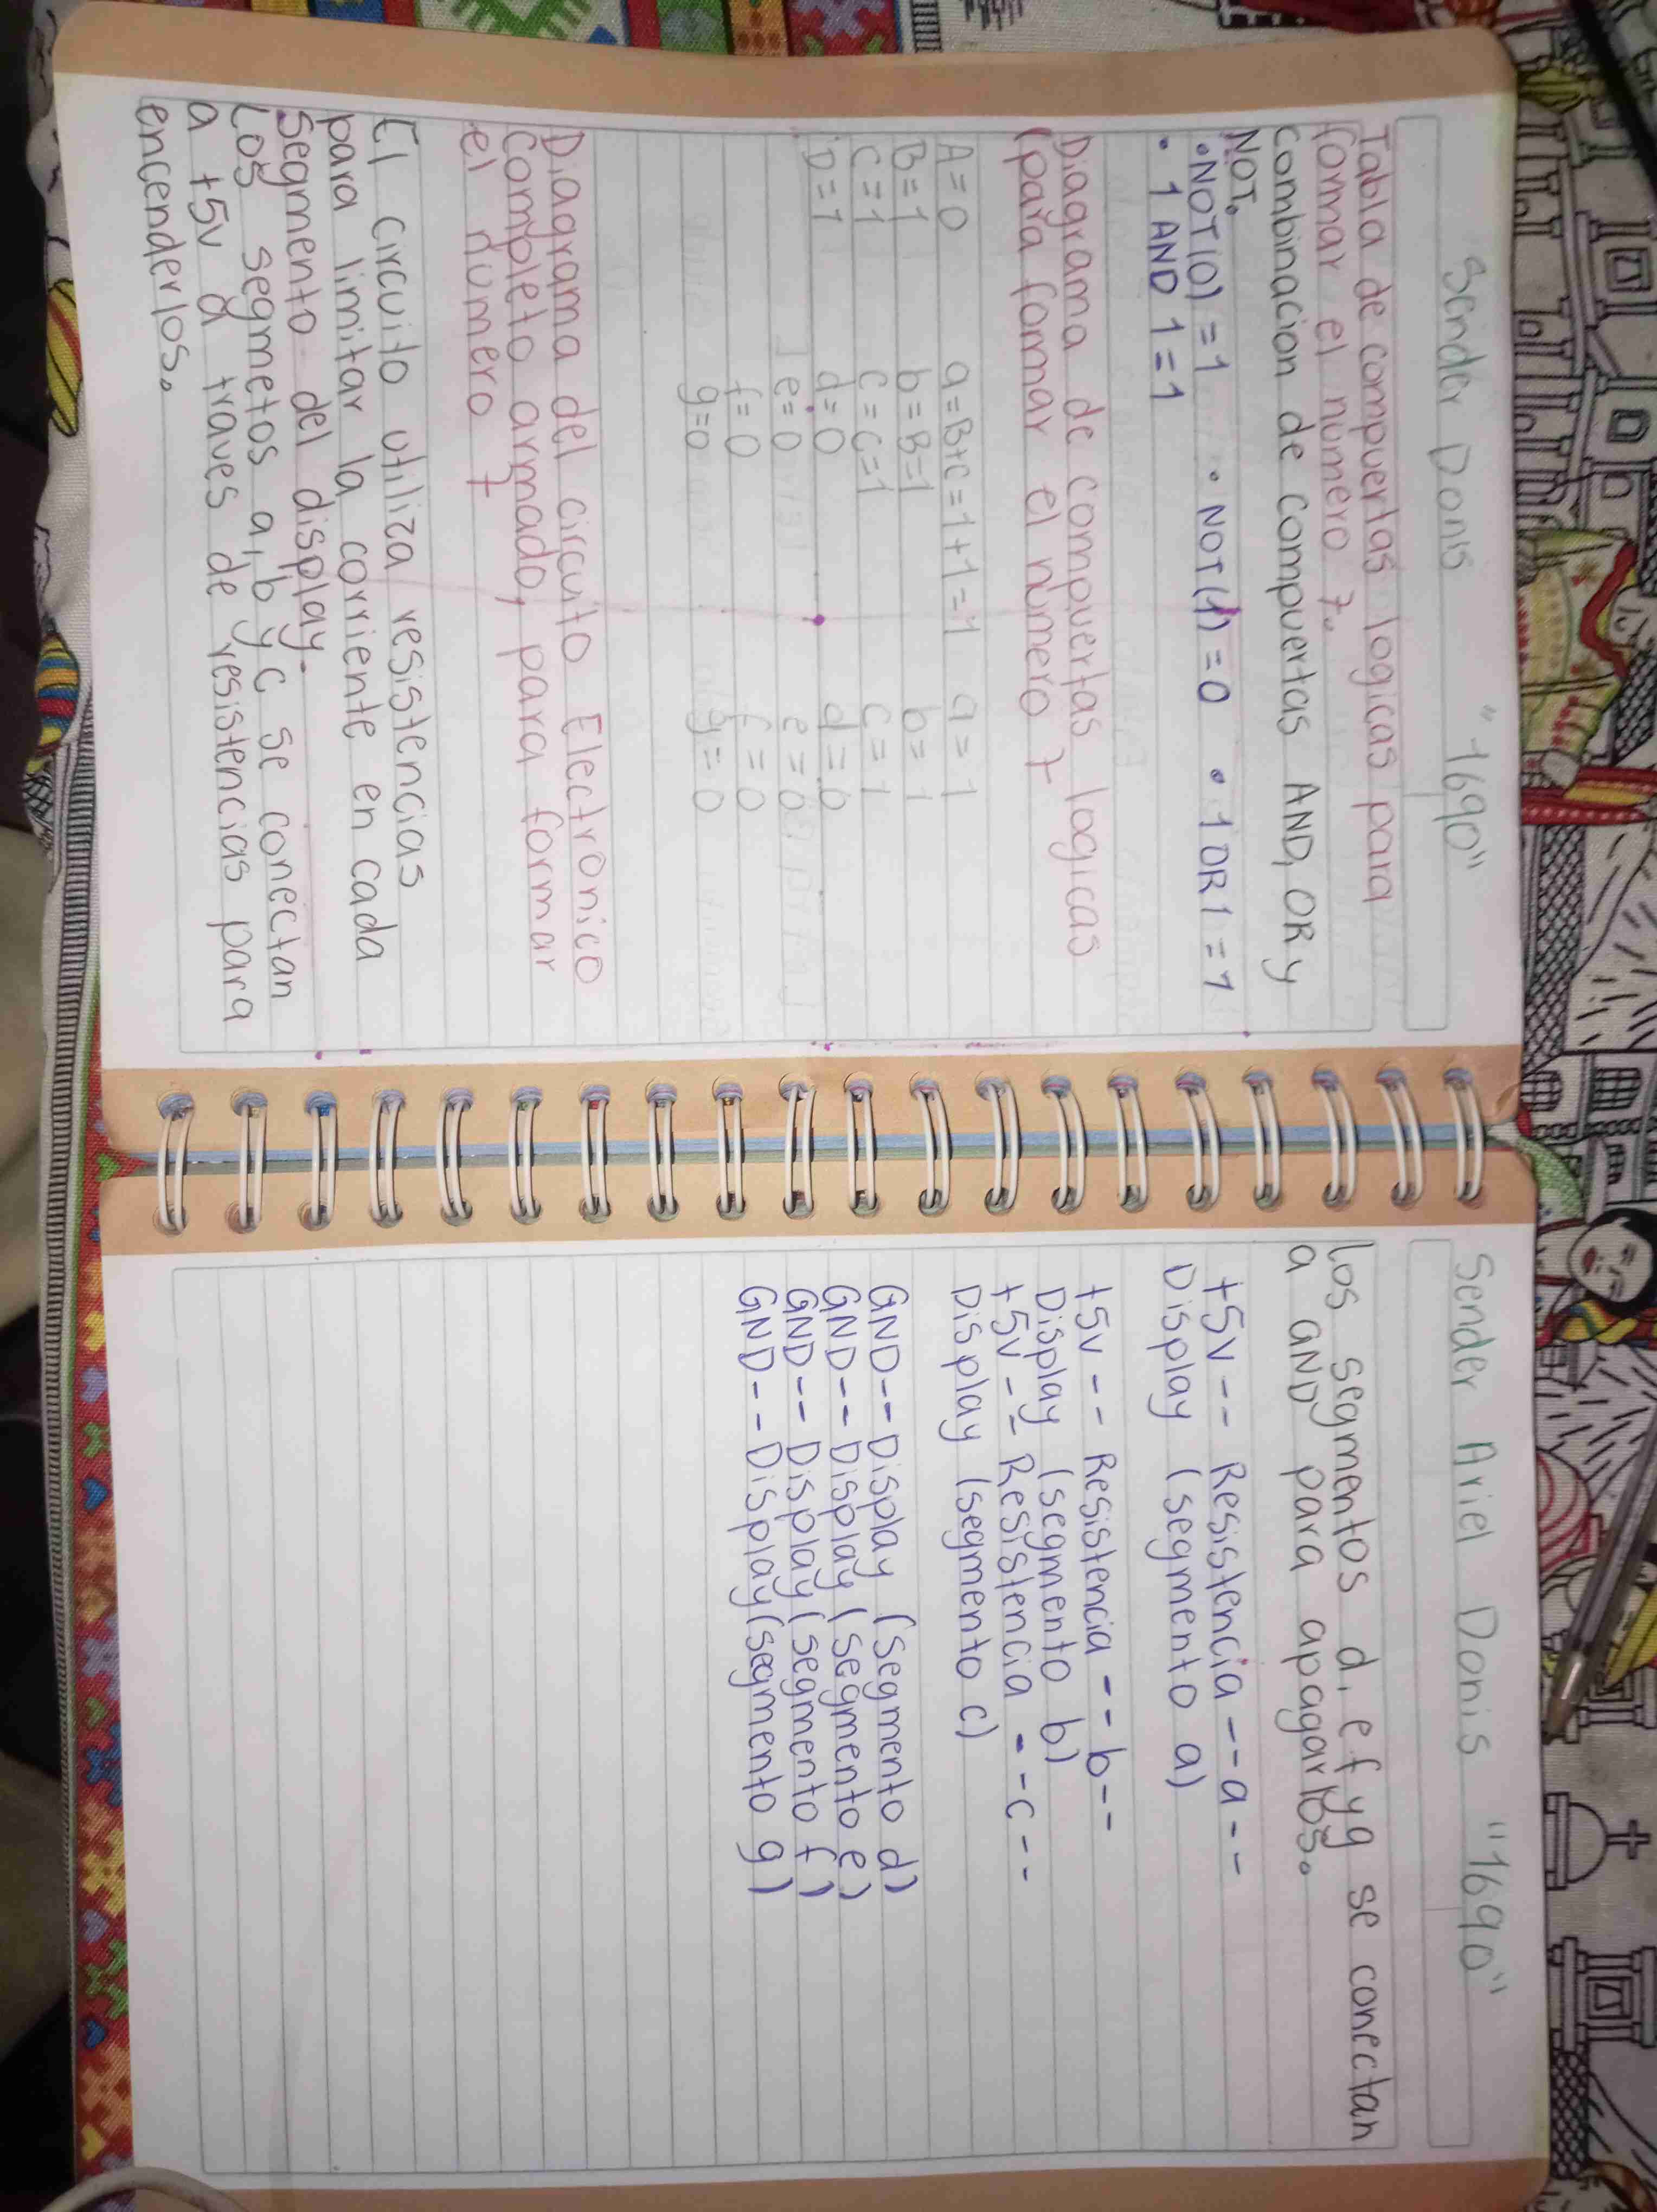 Sender Donis "1690"
Tabla de compuertas logicas para
fomar el numero 7.
combinacion de compuertas AND, OR y
NOT.
• NOT(0) = 1 • NOT(1) = 0 • 1 OR 1 = 1
• 1 AND 1 = 1
Diagrama de compuertas logicas
(para fomar el número 7
A = 0 a = B+C = 1+1 = 1 a = 1
B = 1 b = B = 1 b = 1
C = 1 c = C = 1 c = 1
D = 1 d = 0 d = 0
e = 0 e = 0
f = 0 f = 0
g = 0 g = 0
Diagrama del circuito Electronico
completo armado, para formar
el número 7
El circuito utiliza resistencias
para limitar la corriente en cada
segmento del display.
Los segmetos a, b y c se conectan
a +5v a traves de resistencias para
encenderlos.
Sender Ariel Donis "1690"
los segmentos d, e f y g se conectan
a aND para apagarlos.
+5v -- Resistencia -- a --
Display (segmento a)
+5v -- Resistencia -- b --
Display (segmento b)
+5v -- Resistencia -- c --
Display (segmento c)
GND -- Display (segmento d)
GND -- Display (segmento e)
GND -- Display (segmento f)
GND -- Display (segmento g)